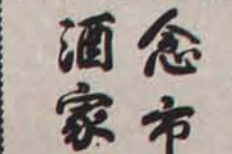 念市
酒家